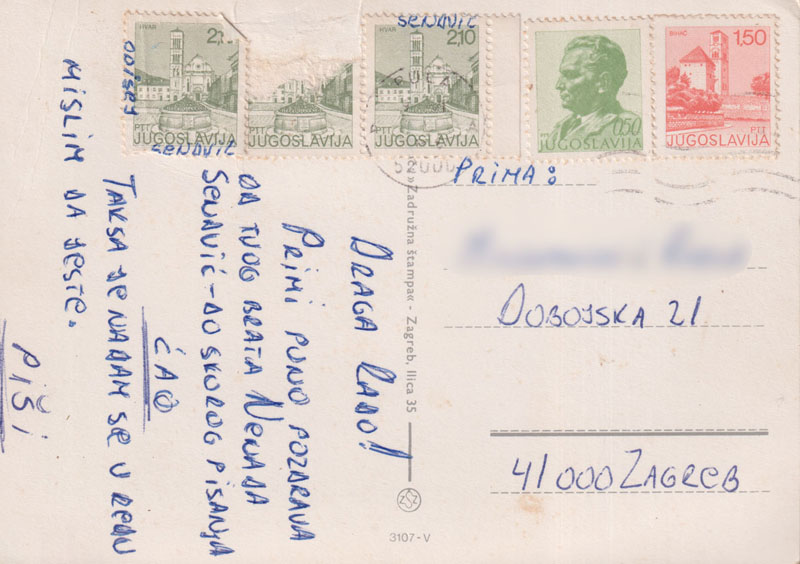 HVAR
2,10
PTT
JUGOSLAVIJA
PTT
JUGOSLAVIJA
SENAVIĆ
HVAR
2,10
PTT
JUGOSLAVIJA
0,50
JUGOSLAVIJA
BIHAĆ
1,50
PTT
JUGOSLAVIJA
SENAVIĆ
52000
PRIMA:
DOBOJSKA 21
41000 ZAGREB
Zadružna štampa« - Zagreb, Ilica 35
3107-V
DRAGA RADO!
PRIMI PUNO POZDRAVA
OD TVOG BRATA NENADA
SENAVIĆ-DO SKOROG PISANJA
ĆAO
TAKSA JE NADAM SE U REDU
MISLIM DA JESTE.
PIŠI